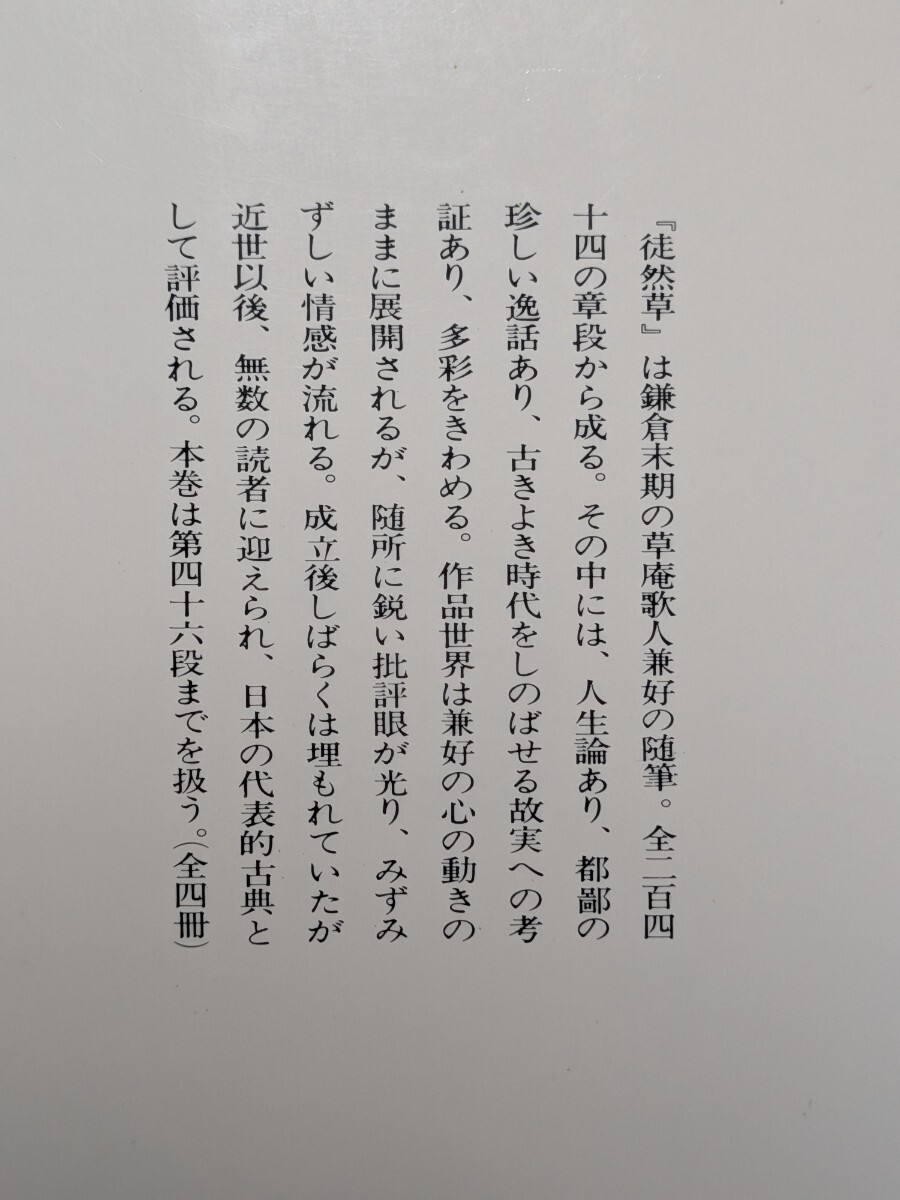 『徒然草』は鎌倉末期の草庵歌人兼好の随筆。全二百四
十四の章段から成る。その中には、人生論あり、都鄙の
珍しい逸話あり、古きよき時代をしのばせる故実への考
証あり、多彩をきわめる。作品世界は兼好の心の動きの
ままに展開されるが、随所に鋭い批評眼が光り、みずみ
ずしい情感が流れる。成立後しばらくは埋もれていたが
近世以後、無数の読者に迎えられ、日本の代表的古典と
して評価される。本巻は第四十六段までを扱う。(全四冊)